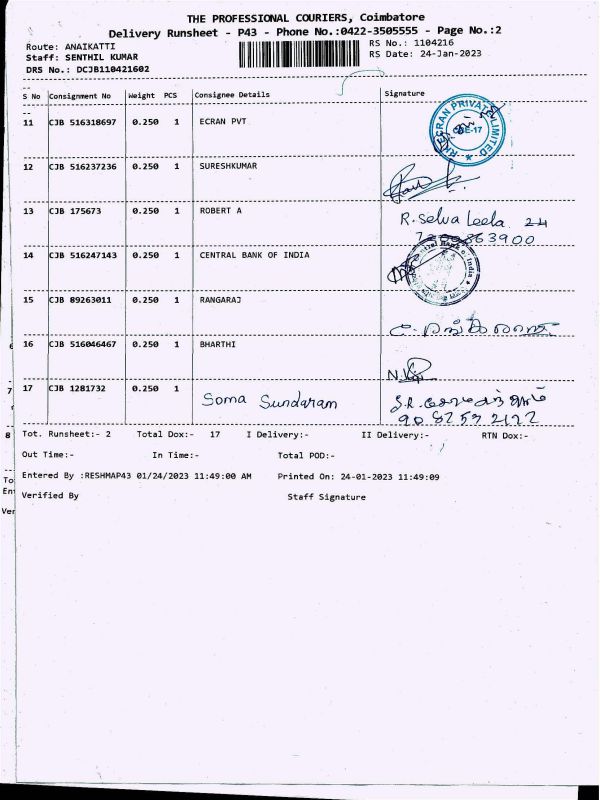 THE PROFESSIONAL COURIERS, Coimbatore
Delivery Runsheet - P43 - Phone No.:0422-3505555 - Page No.:2
Route: ANAIKATTI RS No.: 1104216
Staff: SENTHIL KUMAR RS Date: 24-Jan-2023
DRS No.: DCJB110421602
S No Consignment No Weight PCS Consignee Details Signature
11 CJB 516318697 0.250 1 ECRAN PVT
PRIVATE LIMITED
12 CJB 516237236 0.250 1 SURESHKUMAR
13 CJB 175673 0.250 1 ROBERT A R. Selva Leela
14 CJB 516247143 0.250 1 CENTRAL BANK OF INDIA
15 CJB 89263011 0.250 1 RANGARAJ
16 CJB 516046467 0.250 1 BHARTHI
17 CJB 1281732 0.250 1 Soma Sundaram
Tot. Runsheet:- 2 Total Dox:- 17 I Delivery:- II Delivery:- RTN Dox:-
Out Time:- In Time:- Total POD:-
Entered By :RESHMAP43 01/24/2023 11:49:00 AM Printed On: 24-01-2023 11:49:09
Verified By Staff Signature